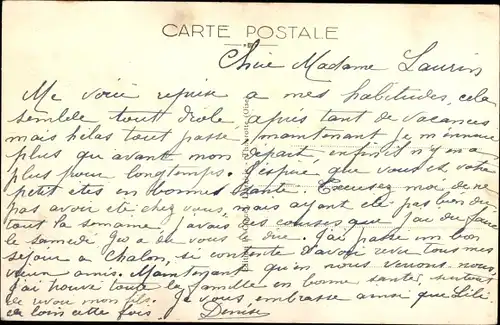 CARTE POSTALE
Chère Madame Laurin
Me voici reprise a mes habitudes, cela
semble tout drole après tant de vacances
mais hélas tout passe, maintenant je m'ennuie
plus qu'avant mon départ, enfin il n'y en a
plus pour longtemps. J'espère que vous et votre
petit etes en bonnes santé. Excusez moi de ne
pas avoir été chez vous, mais ayant été pas bien du
tout la semaine j'avais des courses que j'ai du faire
le samedi vous dire. J'ai passé un bon
séjour a Chalon, si contente d'avoir revu tous mes
vieux amis. Maintenant qu'en nous venons nous,
j'ai trouvé toute la famille en bonne santé, surtout
de revoir mon fils. Je vous embrasse ainsi que Lili
cette fois. Denise